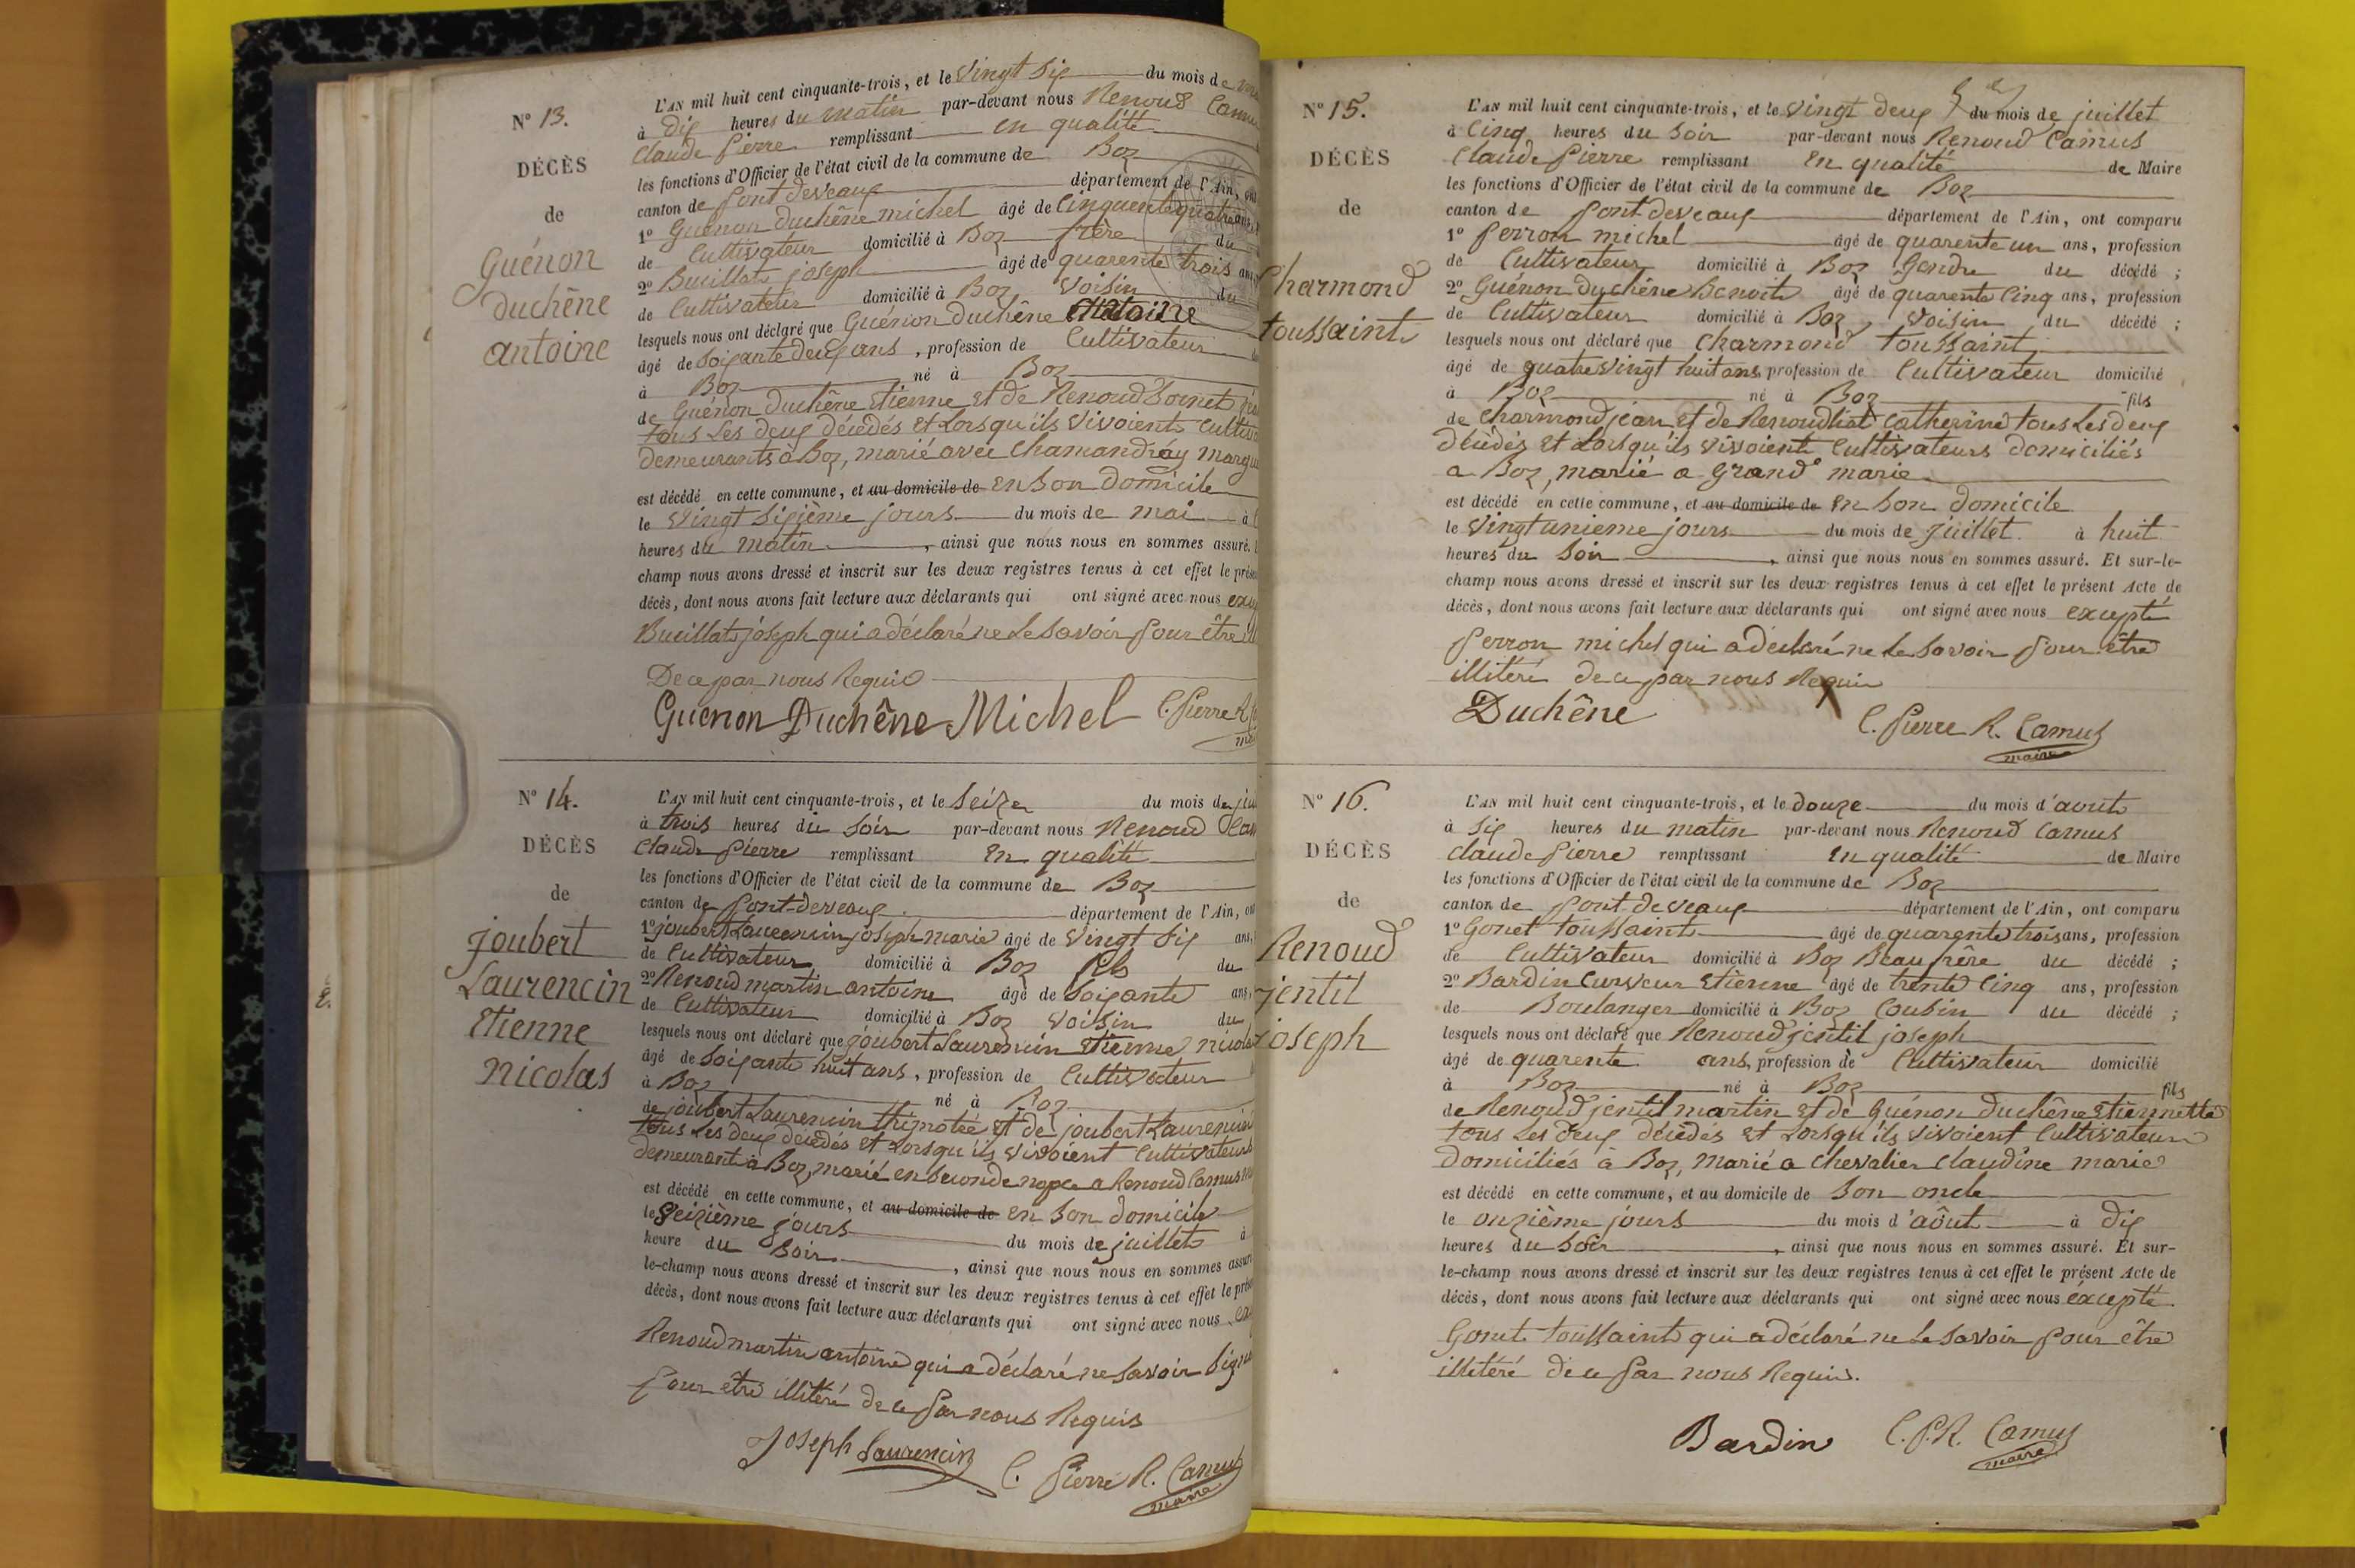 N° 13.
DÉCÈS
de
Guénon
Duchêne
antoine
L'AN mil huit cent cinquante-trois, et le vingt six du mois de
à dix heures du matin par-devant nous Renoud Camus
Claude Pierre remplissant en qualité
les fonctions d'Officier de l'état civil de la commune de Boz
canton de Pont deveaux département de l'Ain, ont
1° Guénon Duchêne michel âgé de cinquente quatre ans
de Cultivateur domicilié à Boz frère du
2° Buillat joseph âgé de quarente trois ans
de Cultivateur domicilié à Boz voisin du
lesquels nous ont déclaré que Guénon Duchêne Antoine
âgé de soixante deux ans, profession de Cultivateur
à Boz né à Boz
de Guénon Duchêne Etienne et de Renoud Sornet
tous les deux décédés et lorsqu'ils vivoient cultiv
demeurants à Boz, marié avec Chamandráy margu
est décédé en cette commune, et au domicile de en son domicile
le vingt sixième jours du mois de mai à
heures du matin, ainsi que nous nous en sommes assuré.
champ nous avons dressé et inscrit sur les deux registres tenus à cet effet le prése
décès, dont nous avons fait lecture aux déclarants qui ont signé avec nous
Buillat joseph qui a déclaré ne le savoir pour être
De ce par nous Requis
Guenon Duchêne Michel C. Pierre R.
N° 14.
DÉCÈS
de
joubert
Laurencin
Etienne
nicolas
L'AN mil huit cent cinquante-trois, et le seize du mois de
à trois heures du soir par-devant nous Renoud Cam
Claude Pierre remplissant en qualité
les fonctions d'Officier de l'état civil de la commune de Boz
canton de Pont-deveaux département de l'Ain, on
1° joubert Laurencin joseph marie âgé de vingt six ans,
de Cultivateur domicilié à Boz fils du
2° Renoud martin antoine âgé de soixante ans,
de Cultivateur domicilié à Boz voisin du
lesquels nous ont déclaré que joubert Laurencin Etienne nicolas
âgé de soixante huit ans, profession de Cultivateur
à Boz né à Boz
de joubert Laurencin thimotée et de joubert Laurencin
tous les deux décédés et lorsqu'ils vivoient cultivateurs
demeurant à Boz, marié en seconde nopce a Renoud Camus
est décédé en cette commune, et au domicile de en son domicile
le seizième jours du mois de juillet à
heure du soir, ainsi que nous nous en sommes assuré
le-champ nous avons dressé et inscrit sur les deux registres tenus à cet effet le prés
décès, dont nous avons fait lecture aux déclarants qui ont signé avec nous
Renoud martin antoine qui a déclaré ne savoir signer
pour être illitéré de ce par nous Requis
Joseph Laurencin C. Pierre R. Camus
maire
N° 15.
DÉCÈS
de
Charmond
toussaint
L'AN mil huit cent cinquante-trois, et le vingt deux du mois de juillet
à cinq heures du soir par-devant nous Renoud Camus
Claude Pierre remplissant en qualité de Maire
les fonctions d'Officier de l'état civil de la commune de Boz
canton de Pont-deveaux département de l'Ain, ont comparu
1° Perron michel âgé de quarente un ans, profession
de Cultivateur domicilié à Boz Gendre du décédé ;
2° Guénon Duchêne Benoit âgé de quarente cinq ans, profession
de Cultivateur domicilié à Boz, voisin du décédé ;
lesquels nous ont déclaré que Charmond toussaint
âgé de quatre vingt huit ans, profession de Cultivateur domicilié
à Boz né à Boz fils
de Charmond jean et de Renoud liat Catherine tous les deux
décédés et lorsqu'ils vivoient Cultivateurs domiciliés
a Boz, marié a Grand marie
est décédé en cette commune, et au domicile de en son domicile
le vingt unieme jours du mois de juillet à huit
heures du soir, ainsi que nous nous en sommes assuré. Et sur-le-
champ nous avons dressé et inscrit sur les deux registres tenus à cet effet le présent Acte de
décès, dont nous avons fait lecture aux déclarants qui ont signé avec nous excepté
Perron michel qui a déclaré ne le savoir pour être
illitéré de ce par nous Requis
Duchêne C. Pierre R. Camus
maire
N° 16.
DÉCÈS
de
Renoud
jentil
joseph
L'AN mil huit cent cinquante-trois, et le douze du mois d'aout
à six heures du matin par-devant nous Renoud Camus
Claude Pierre remplissant en qualité de Maire
les fonctions d'Officier de l'état civil de la commune de Boz
canton de Pont-deveaux département de l'Ain, ont comparu
1° Gonet toussaint âgé de quarente trois ans, profession
de Cultivateur domicilié à Boz Beaufrère du décédé ;
2° Bardin Curveur Etienne âgé de trente cinq ans, profession
de Boulanger domicilié à Boz Cousin du décédé ;
lesquels nous ont déclaré que Renoud jentil joseph
âgé de quarente ans, profession de Cultivateur domicilié
à Boz né à Boz fils
de Renoud jentil martin et de Guénon Duchêne Etiennette
tous les deux décédés et lorsqu'ils vivoient Cultivateurs
domiciliés à Boz, marié a chevalier claudine marie
est décédé en cette commune, et au domicile de son oncle
le onzième jours du mois d'août à dix
heures du soir, ainsi que nous nous en sommes assuré. Et sur-
le-champ nous avons dressé et inscrit sur les deux registres tenus à cet effet le présent Acte de
décès, dont nous avons fait lecture aux déclarants qui ont signé avec nous excepté
Gonet toussaint qui a déclaré ne le savoir pour être
illitéré de ce par nous Requis.
Bardin C.P.R. Camus
maire